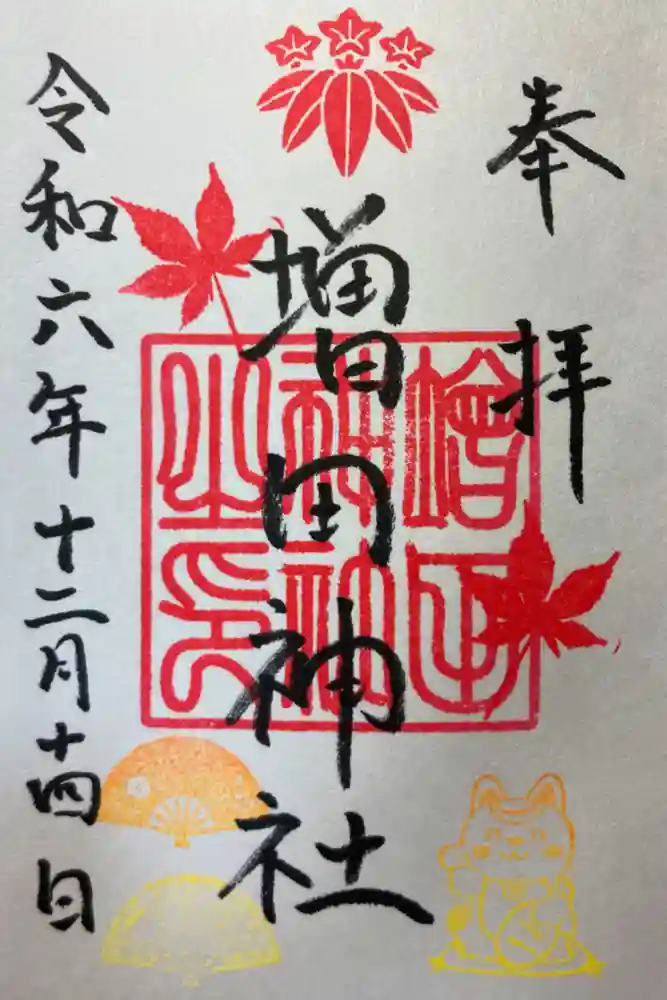 奉拝
増田神社
令和六年十二月十四日